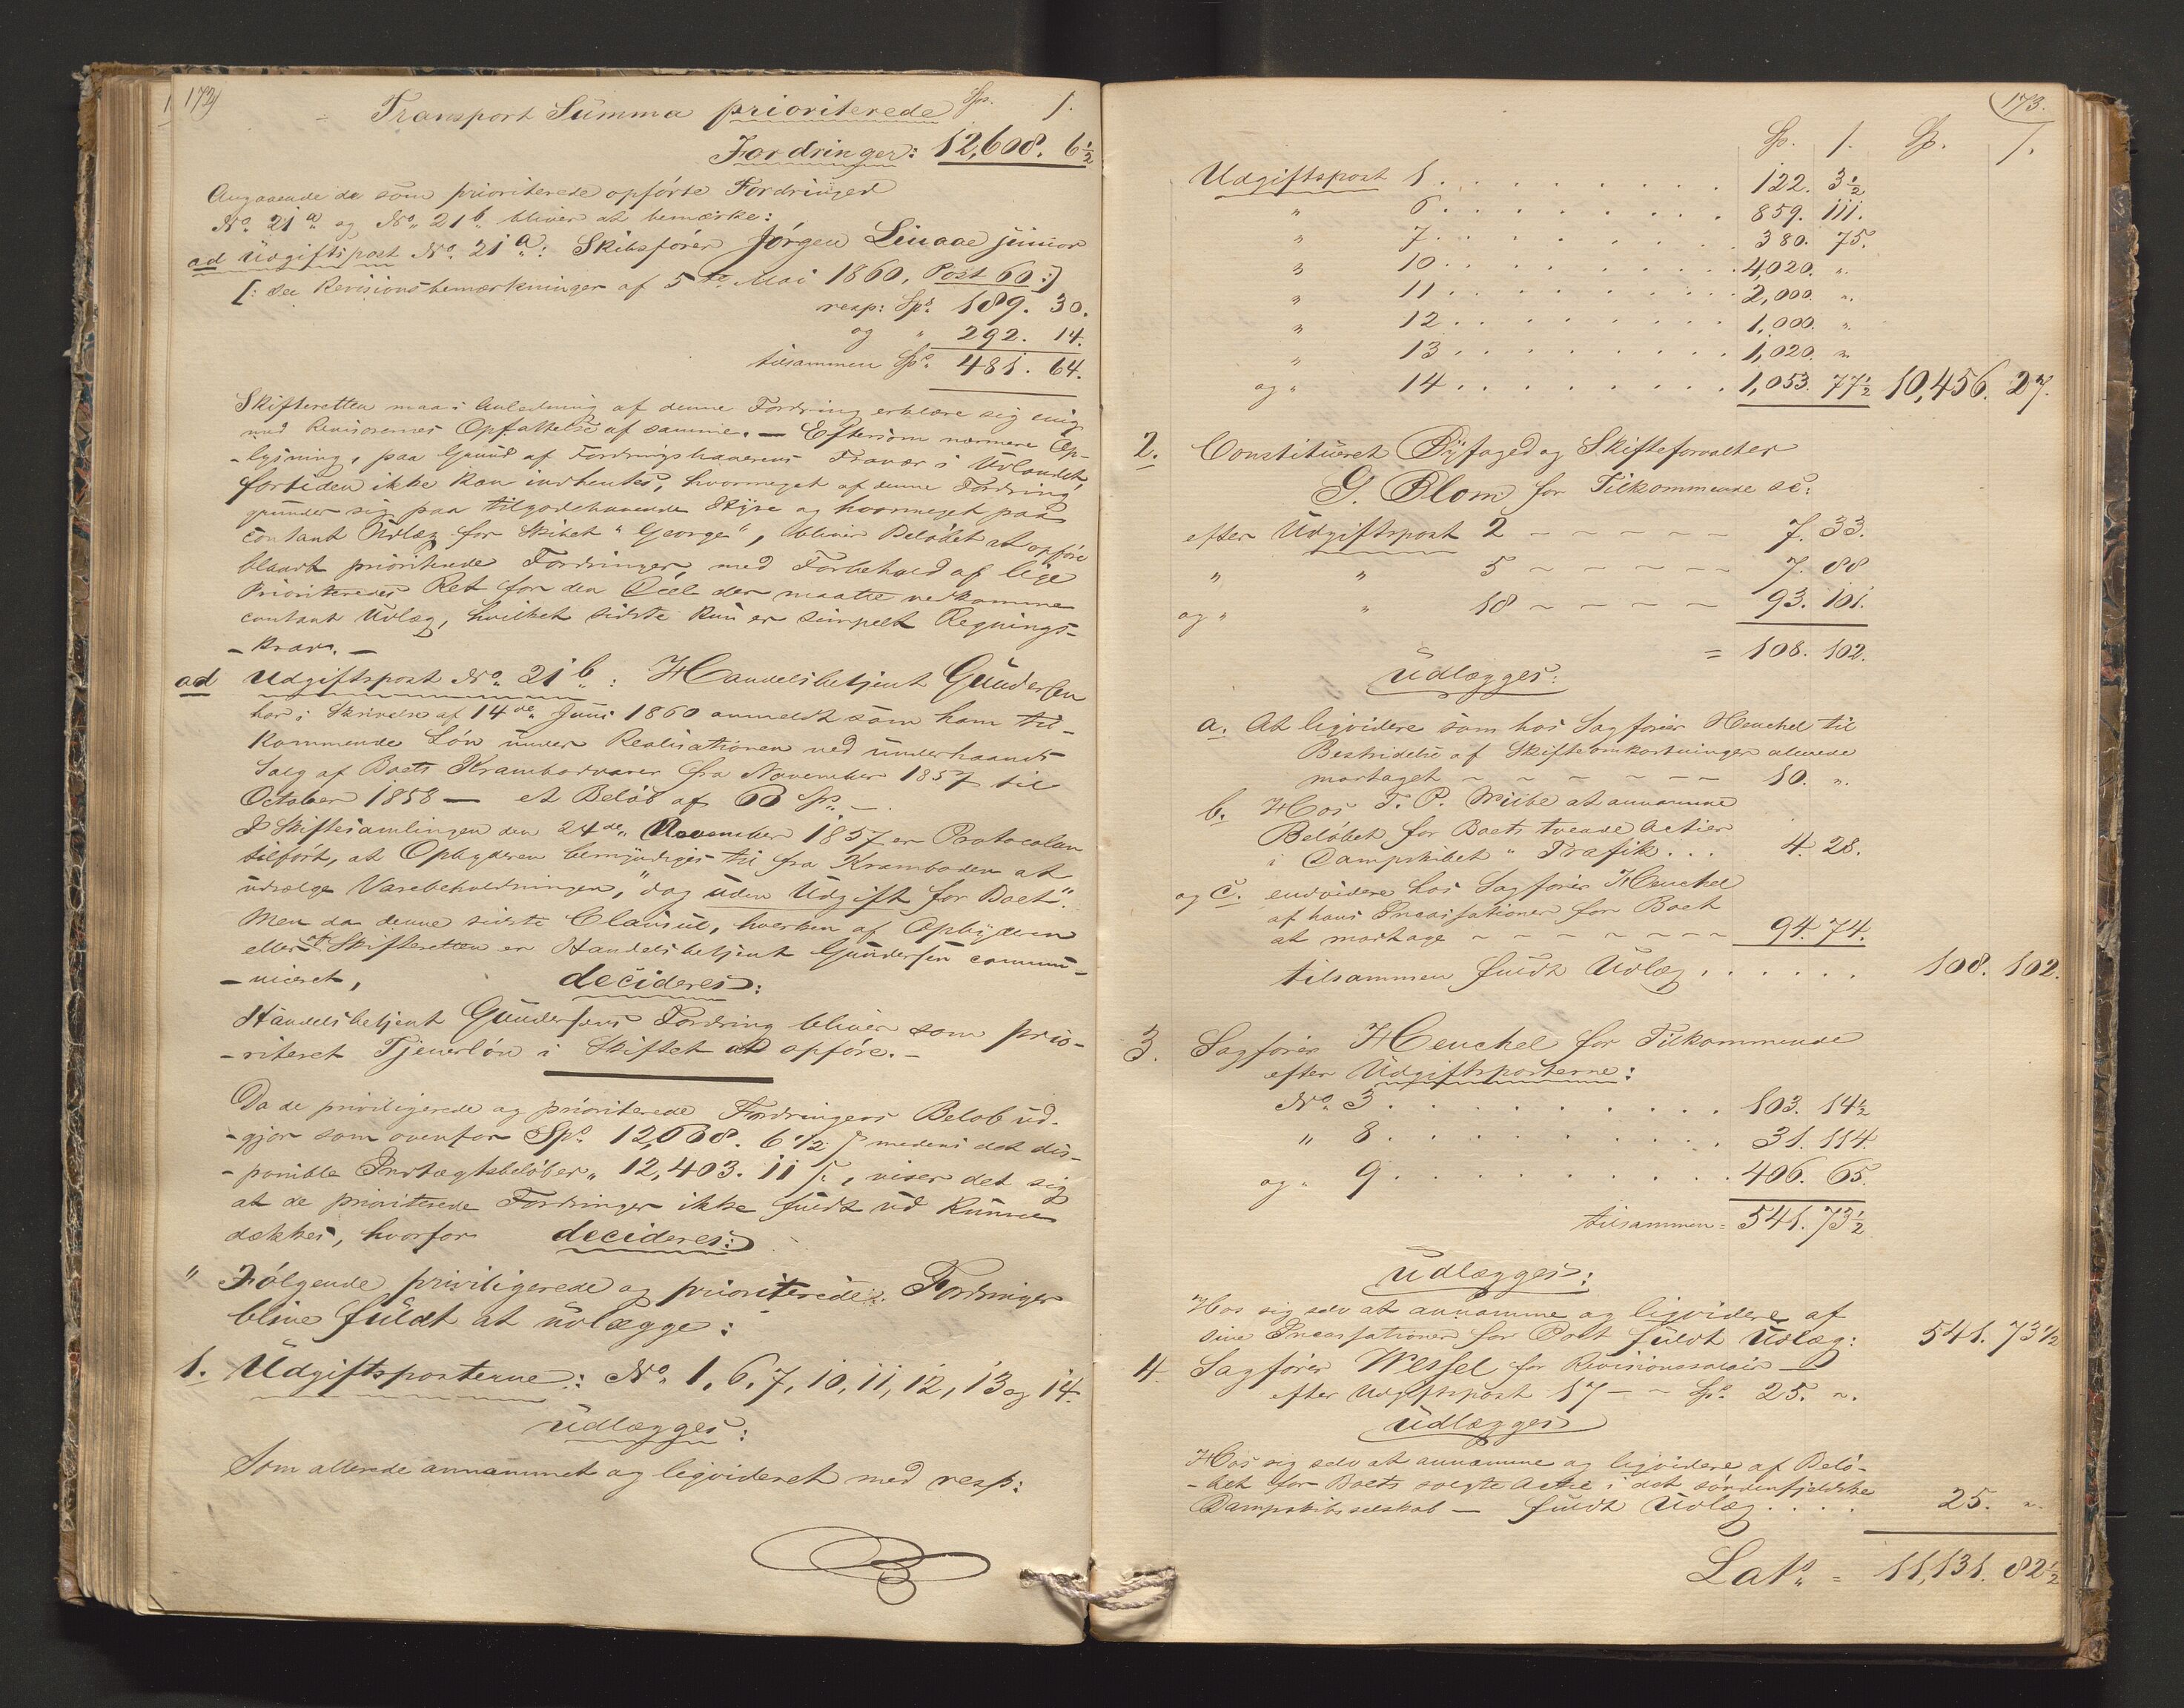 172
Transport Summa prioriterede Sp. ſ.
Fordringer: 12,608. 6½
Angaaende de som prioriterede opførte Fordringer
No. 21a og No. 21b bliver at bemærke:
ad Udgiftspost No. 21a: Skibsfører Jørgen Linaae junior
[: see Revisionsbemærkninger af 5te Mai 1860, Post 60 :]
resp: Spd. 189. 30.
og " 292. 14.
tilsammen Spd. 481. 64.
Skifteretten maa i Anledning af denne Fordring erklære sig enig
med Revisorernes Opfattelse af samme. — Eftersom nærmere Op-
-lysning, paa Grund af Fordringshaverens Fravær i Udlandet,
fortiden ikke kan indhentes, hvormeget af denne Fordring
grunder sig paa tilgodehavende Hyre og hvormeget paa
contant Udlæg for Skibet "George", bliver Beløbet at opføre
blandt prioriterede Fordringer, med Forbehold af lige
Prioriteredes Ret for den Deel der maatte vedkomme
contant Udlæg, hvilket sidste kun er simpelt Regnings-
-krav. —
ad Udgiftspost No. 21b: Handelsbetjent Gundersen
har i Skrivelse af 14de Juni 1860 anmeldt som ham til-
kommende Løn under Realisationen ved underhaands
Salg af Boets Krambodvarer fra November 1857 til
October 1858 — et Beløb af 60 Sp. —
I Skiftesamlingen den 24de November 1857 er Protocolen
tilført, at Opbyderen bemyndiges til fra Kramboden at
udsælge Varebeholdningen, "dog uden Udgift for Boet".
Men da denne sidste Clausul, hverken af Opbyderen
eller af Skifteretten er Handelsbetjent Gundersen commu-
-niceret, decideres:
Handelsbetjent Gundersens Fordring bliver som prio-
-riteret Tjenerløn i Skiftet at opføre. —
Da de priviligerede og prioriterede Fordringers Beløb ud-
-gjør som ovenfor Spd. 12,608. 6½ ſ medens det dis-
-ponible Indtægtsbeløb er " 12,403. 11 ſ., viser det sig
at de prioriterede Fordringer ikke fuldt ud kunne
dækkes, hvorfor decideres:
" Følgende priviligerede og prioriterede Fordringer
blive fuldt at udlægge:
1. Udgiftsposterne: No. 1, 6, 7, 10, 11, 12, 13 og 14.
udlægges:
Som allerede annammet og ligvideret med resp:
173.
Sp. ſ. Sp. ſ.
Udgiftspost 1 . . . . . . . . 122. 3½
" 6 . . . . . . . . 859. 111.
" 7 . . . . . . . . 380. 75.
" 10 . . . . . . . . 4,020. "
" 11 . . . . . . . . 2,000. "
" 12 . . . . . . . . 1,000. "
" 13 . . . . . . . . 1,020. "
og " 14 . . . . . . . . 1,053. 77½ 10,456. 27.
2. Constitueret Byfoged og Skifteforvalter
G. Blom for Tilkommende
efter Udgiftspost 2 — — — — — 7. 33.
" " 5 — — — — — 7. 88
og " " 18 — — — — — 93. 101.
= 108. 102.
Udlægges:
a. At ligvidere som hos Sagfører Heuchel til
Bestridelse af Skifteomkostninger allerede
modtaget — — — — — — 10. "
b. Hos T. P. Wiibe at annamme
Beløbet for Boets tvende Actier
i Dampskibet "Trafik . . . 4. 28.
og c. endvidere hos Sagfører Heuchel
af hans Incassationer for Boet
at modtage — — — — — — — 94. 74.
tilsammen fuldt Udlæg . . . . . . 108. 102.
3. Sagfører Heuchel for Tilkommende
efter Udgiftsposterne:
No. 3 . . . . . . . . . . 103. 14½
" 8 . . . . . . . . . . 31. 114.
og " 9 . . . . . . . . . . 406. 65.
tilsammen = 541. 73½
Udlægges:
Hos sig selv at annamme og ligvidere af
sine Incassationer for Boet fuldt Udlæg: 541. 73½
4. Sagfører Wessel for Revisionssalair —
efter Udgiftspost 17 — — Spd. 25. "
Udlægges
Hos sig selv at annamme og ligvidere af Belø-
-bet for Boets solgte Actie i det søndenfjeldske
Dampskibsselskab — fuldt Udlæg . . . . 25. "
Lats. = 11,131. 82½